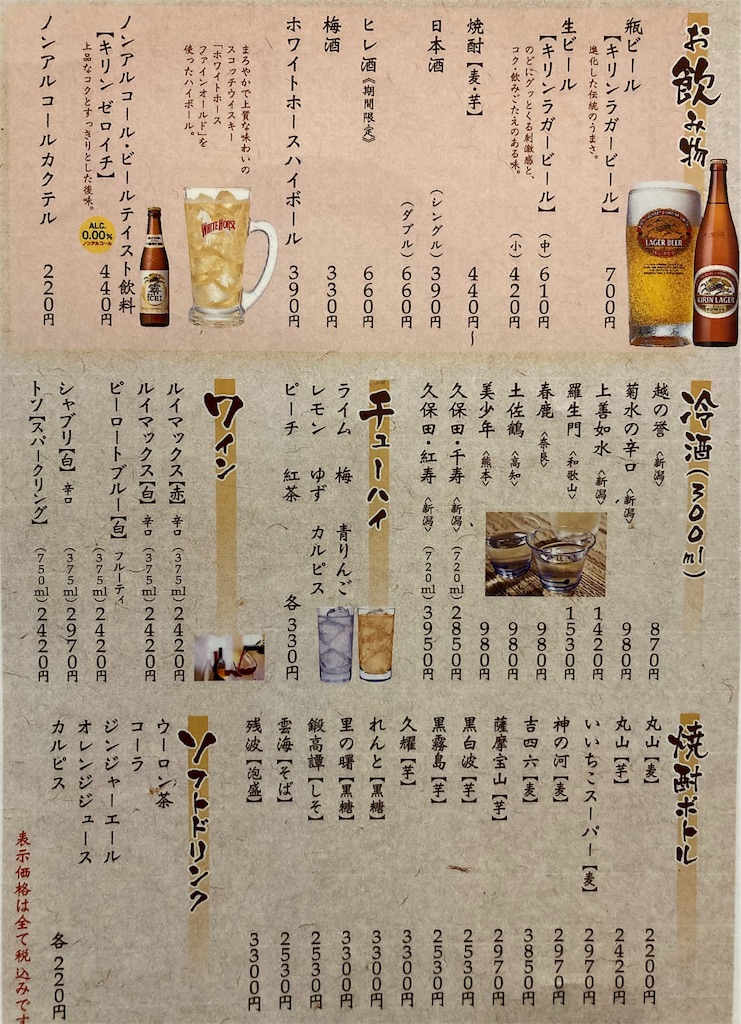 お飲み物
瓶ビール
【キリンラガービール】 700円
進化した伝統のうまさ。
生ビール
【キリンラガービール】 (中) 610円
のどにグッとくる刺激感と、
コク・飲みごたえのある味。
(小) 420円
焼酎【麦・芋】 440円~
日本酒 (シングル) 390円
(ダブル) 660円
ヒレ酒《期間限定》 660円
梅酒 330円
ホワイトホースハイボール 390円
まろやかで上質な味わいの
スコッチウイスキー
「ホワイトホース
ファインオールド」を
使ったハイボール。
ノンアルコール・ビールテイスト飲料
【キリンゼロイチ】 440円
上品なコクとすっきりとした後味。
ALC.
0.00%
ノンアルコール
ノンアルコールカクテル 220円
WHITE HORSE
零ICHI
LAGER BEER
KIRIN LAGER
冷酒(300ml)
越の誉〈新潟〉 870円
菊水の辛口〈新潟〉 980円
上善如水〈新潟〉 1420円
羅生門〈和歌山〉 1530円
春鹿〈奈良〉 980円
土佐鶴〈高知〉 980円
美少年〈熊本〉 980円
久保田・千寿〈新潟〉(720ml) 2850円
久保田・紅寿〈新潟〉(720ml) 3950円
チューハイ
ライム 梅 青りんご
レモン ゆず カルピス
ピーチ 紅茶 各330円
ワイン
ルイマックス【赤】辛口 (375ml) 2420円
ルイマックス【白】辛口 (375ml) 2420円
ピーロートブルー【白】フルーティ (375ml) 2420円
シャブリ【白】辛口 (375ml) 2970円
トソ【スパークリング】 (750ml) 2420円
焼酎ボトル
丸山【麦】 2200円
丸山【芋】 2420円
いいちこスーパー【麦】 2970円
神の河【麦】 2970円
吉四六【麦】 3850円
薩摩宝山【芋】 2970円
黒白波【芋】 2530円
黒霧島【芋】 2530円
久耀【芋】 3300円
れんと【黒糖】 3300円
里の曙【黒糖】 3300円
鍛高譚【しそ】 2530円
雲海【そば】 2530円
残波【泡盛】 3300円
ソフトドリンク
ウーロン茶
コーラ
ジンジャーエール
オレンジジュース
カルピス 各220円
表示価格は全て税込みです